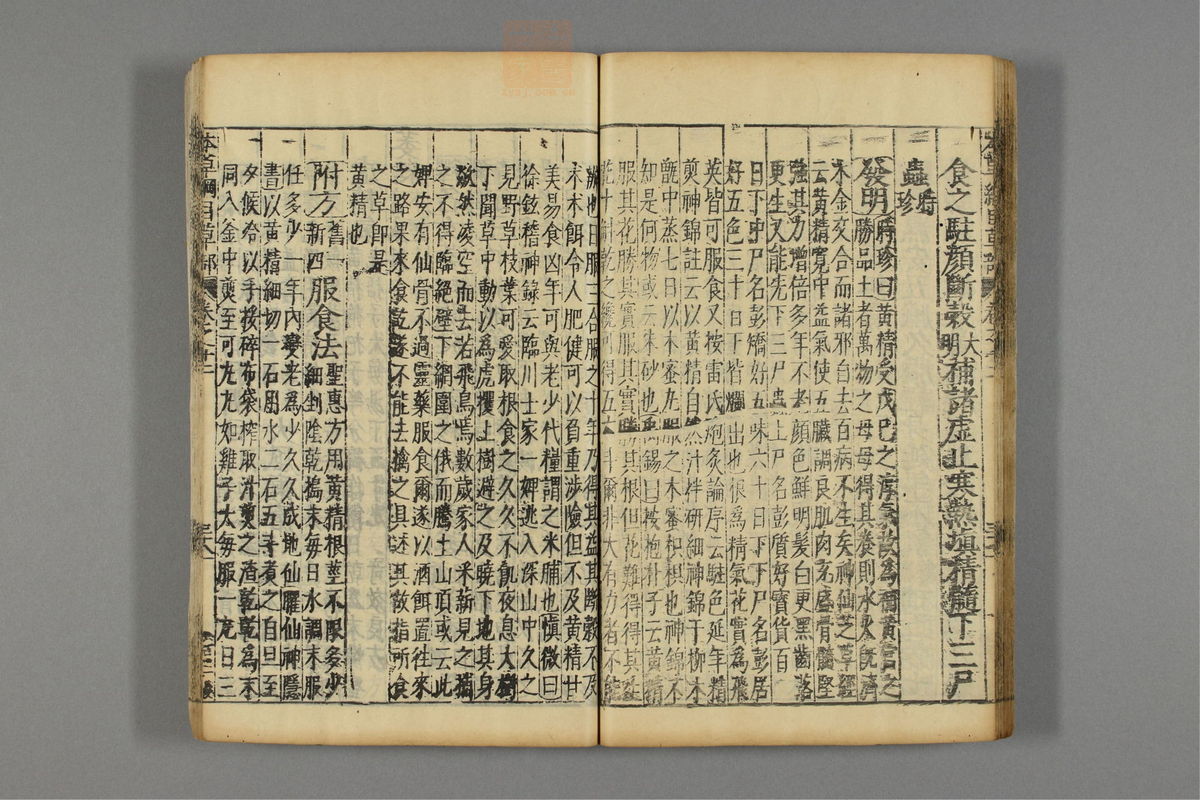 食之駐顏斷穀大明補諸虛止寒熱填精髓下三尸
蟲時珍
發明時珍曰黃精受戊巳之淳氣故為補黃宮之
勝品土者萬物之母母得其養則水火既濟
木金交合而諸邪自去百病不生矣神仙芝草經
云黃精寬中益氣使五臟調良肌肉充盛骨髓堅
強其力增倍多年不老顏色鮮明髮白更黑齒落
更生又能先下三尸蟲上尸名彭質好寶貨百
日下中尸名彭矯好五味六十日下下尸名彭居
好五色三十日下皆爛出也根為精氣花實為飛
英皆可服食又按雷氏炮炙論序云駐色延年精
煎神錦註云以黃精自然汁拌研細神錦于柳木
甑中蒸七日以木蜜丸服之木蜜枳椇也神錦不
知是何物或云朱砂也禹錫曰按抱朴子云黃精
服其花勝其實服其實勝其根但花難得得其生
花十斛乾之纔可得五六斗爾非大有力者不能
辦也日服三合服之十年乃得其益其斷穀不及
朮朮餌令人肥健可以負重涉險但不及黃精甘
美易食凶年可與老少代糧謂之米脯也慎微曰
徐鉉稽神錄云臨川士家一婢逃入深山中久之
見野草枝葉可愛取根食之久久不飢夜息大樹
下聞草中動以為虎攫上樹避之及曉下地其身
欻然凌空而去若飛鳥焉數歲家人釆薪見之捕
之不得臨絕壁下網圍之俄而騰上山頂或云此
婢安有仙骨不過靈藥服食爾遂以酒餌置往來
之路果來食訖遂不能去擒之具述其故指所食
之草卽是
黃精也
附方舊一新四服食法聖惠方用黃精根莖不限多少
細剉陰乾搗末每日水調末服
任多少一年內變老為少久久成地仙臞仙神隱
書以黃精細切一石用水二石五手煮之自旦至
夕候冷以手挼碎布袋榨取汁煎之渣乾為末
同入釜中煎至可丸丸如雞子大每服一丸日三